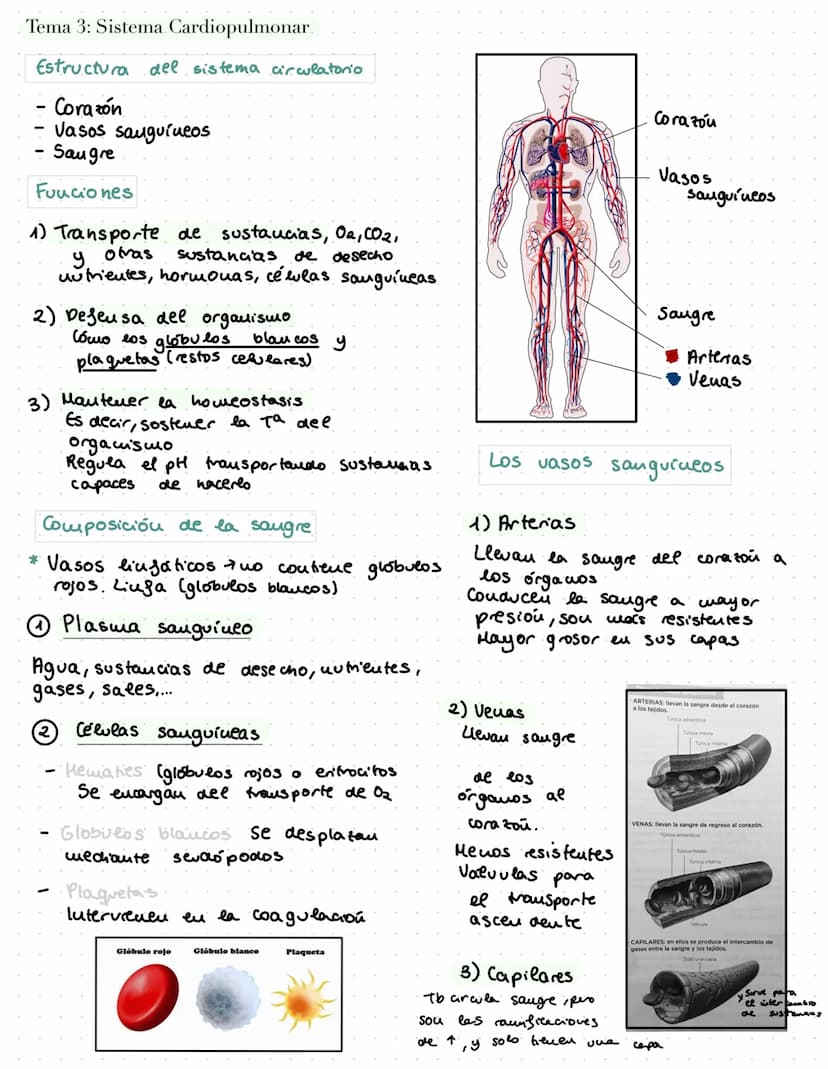 Tema 3: Sistema Cardiopulmonar
Estructura del sistema circulatorio
- Corazón
- Vasos sanguíneos
- Sangre
Funciones
1) Transporte de sustancias, O2, CO2,
y otras sustancias de desecho
nutrientes, hormonas, células sanguíneas
2) Defensa del organismo
Cómo los glóbulos blancos y
plaquetas (restos celulares)
3) Mantener la homeostasis
Es decir, sostener la Tª del
organismo
Regula el pH transportando sustancias
capaces de hacerlo
Composición de la sangre
* Vasos linfáticos → no contiene glóbulos
rojos. Linfa (glóbulos blancos)
① Plasma sanguíneo
Agua, sustancias de desecho, nutrientes,
gases, sales,...
② Células sanguíneas
- Hematíes (glóbulos rojos o eritrocitos
Se encargan del transporte de O2
- Glóbulos blancos se desplazan
mediante seudópodos
- Plaquetas
Intervienen en la coagulación
Glóbulo rojo Glóbulo blanco Plaqueta
Corazón
Vasos
sanguíneos
Sangre
Arterias
Venas
Los vasos sanguíneos
1) Arterias
Llevan la sangre del corazón a
los órganos
Conducen la sangre a mayor
presión, son más resistentes
Mayor grosor en sus capas
2) Venas
Llevan sangre
de los
órganos al
corazón.
Menos resistentes
Válvulas para
el transporte
ascendente
3) Capilares
Tb circula sangre, pero
son las ramificaciones
de ↑, y solo tienen una capa
ARTERIAS: llevan la sangre desde el corazón
a los tejidos.
Túnica adventicia
Túnica media
Túnica interna
VENAS: llevan la sangre de regreso al corazón.
Túnica adventicia
Túnica media
Túnica interna
Válvula
CAPILARES: en ellos se produce el intercambio de
gases entre la sangre y los tejidos.
Solo una capa
y sirve para
el intercambio
de sustancias